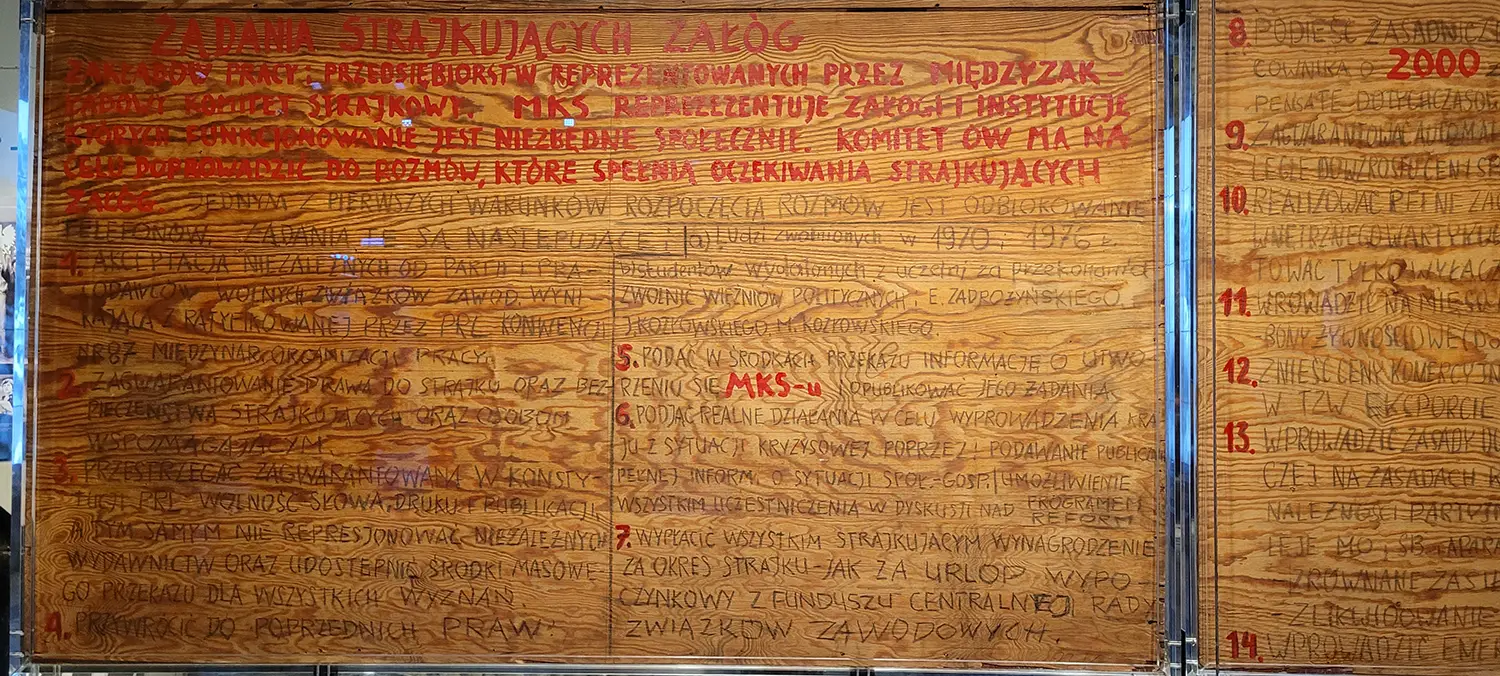 ŻĄDANIA STRAJKUJĄCYCH ZAŁÓG
ZAKŁADÓW PRACY i PRZEDSIĘBIORSTW REPREZENTOWANYCH PRZEZ MIĘDZYZAK-
ŁADOWY KOMITET STRAJKOWY. MKS REPREZEZENTUJE ZAŁOGI I INSTYTUCJE
KTÓRYCH FUNKCJONOWANIE JEST NIEZBĘDNE SPOŁECZNIE. KOMITET ÓW MA NA
CELU DOPROWADZIĆ DO ROZMÓW, KTÓRE SPEŁNIĄ OCZEKIWANIA STRAJKUJĄCYCH
ZAŁÓG. JEDNYM Z PIERWSZYCH WARUNKÓW ROZPOCZĘCIA ROZMÓW JEST ODBLOKOWANIE
TELEFONÓW. ŻĄDANIA TE SĄ NASTĘPUJĄCE:
1. AKCEPTACJA NIEZALEŻNYCH OD PARTII I PRA-
CODAWCÓW WOLNYCH ZWIĄZKÓW ZAWOD. WYNI-
KAJĄCA Z RATYFIKOWANEJ PRZEZ PRL KONWENCJI
NR 87 MIĘDZYNAR. ORGANIZACJI PRACY.
2. ZAGWARANTOWANIE PRAWA DO STRAJKU ORAZ BEZ-
PIECZEŃSTWA STRAJKUJĄCYCH ORAZ OSOBOM
WSPOMAGAJĄCYM.
3. PRZESTRZEGAĆ ZAGWARANTOWANĄ W KONSTY-
TUCJI PRL WOLNOŚĆ SŁOWA, DRUKU I PUBLIKACJI
A TYM SAMYM NIE REPRESJONOWAĆ NIEZALEŻNYCH
WYDAWNICTW ORAZ UDOSTĘPNIĆ ŚRODKI MASOWE-
GO PRZEKAZU DLA WSZYSTKICH WYZNAŃ.
4. PRZYWRÓCIĆ DO POPRZEDNICH PRAW:
a) ludzi zwolnionych w 1970 i 1976 r.
b) studentów wydalonych z uczelni za przekonania
ZWOLNIĆ WIĘŹNIÓW POLITYCZNYCH i E. ZADROŻYŃSKIEGO.
J. KOZŁOWSKIEGO M. KOZŁOWSKIEGO.
5. PODAĆ W ŚRODKACH PRZEKAZU INFORMACJĘ O UTWO
RZENIU SIĘ MKS-u I OPUBLIKOWAĆ JEGO ŻĄDANIA
6. PODJĄĆ REALNE DZIAŁANIA W CELU WYPROWADZENIA KRA
JU Z SYTUACJI KRYZYSOWEJ POPRZEZ: PODAWANIE PUBLICZN
PEŁNEJ INFORM. O SYTUACJI SPOŁ-GOSP. UMOŻLIWIENIE
WSZYSTKIM UCZESTNICZENIA W DYSKUSJI NAD PROGRAMEM
REFORM
7. WYPŁACIĆ WSZYSTKIM STRAJKUJĄCYM WYNAGRODZENIE
ZA OKRES STRAJKU-JAK ZA URLOP WYPO-
CZYNKOWY Z FUNDUSZU CENTRALNEJ RADY
ZWIĄZKÓW ZAWODOWYCH.
8. PODIEŚĆ ZASADNICZE
COWNIKA O 2000 Z
PENSATĘ DOTYCHCZASOW
9. ZAGWARANTOWAĆ AUTOMAT
LEGLE DO WZROSTU CEN I SP
10. REALIZOWAĆ PEŁNE ZAO
WNĘTRZNEGO W ARTYKUŁ
TOWAĆ TYLKO WYŁĄCZ
11. WROWADZIĆ NA MIĘSO
BONY ŻYWNOŚCIOWE (DO
12. ZNIEŚĆ CENY KOMERCYJN
W TZW. EKCPORCIE
13. WPROWADZIĆ ZASADY DO
CZEJ NA ZASADACH K
NALEŻNOŚCI PARTYJN
LEJE MO, SB i APARA
ZRÓWNANIE ZASIŁ
-ZLIKWIDOWANIE
14. WPROWADZIĆ EMER